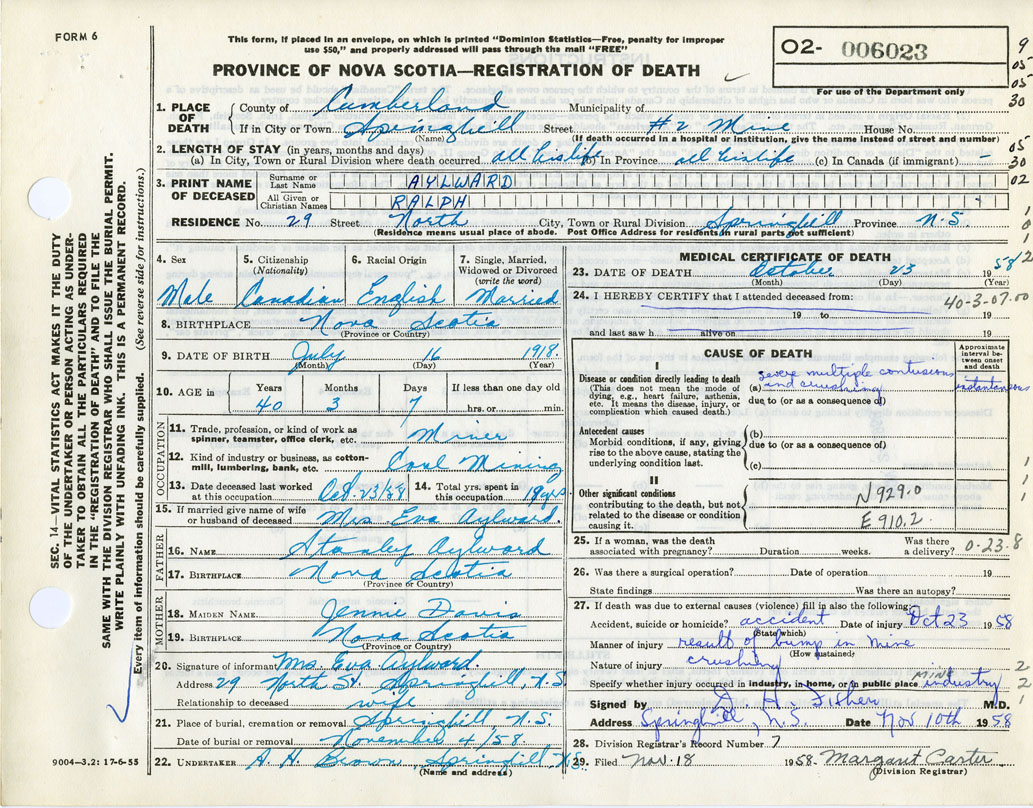 FORM 6
This form, if placed in an envelope, on which is printed "Dominion Statistics—Free, penalty for improper
use $50," and properly addressed will pass through the mail "FREE"
PROVINCE OF NOVA SCOTIA—REGISTRATION OF DEATH
O2- 006023
For use of the Department only
9
05-
05
30
1. PLACE OF DEATH
County of Cumberland Municipality of
If in City or Town Springhill Street #2 Mine House No.
(Name) (If death occurred in a hospital or institution, give the name instead of street and number)
2. LENGTH OF STAY (in years, months and days)
(a) In City, Town or Rural Division where death occurred all his life (b) In Province all his life (c) In Canada (if immigrant) -
05
30
02
3. PRINT NAME OF DECEASED
Surname or Last Name AYLWARD
All Given or Christian Names RALPH
RESIDENCE No. 29 Street North City, Town or Rural Division Springhill Province N.S.
(Residence means usual place of abode. Post Office Address for residents in rural parts not sufficient)
4. Sex
Male
5. Citizenship
(Nationality)
Canadian
6. Racial Origin
English
7. Single, Married, Widowed or Divorced
(write the word)
Married
8. BIRTHPLACE Nova Scotia
(Province or Country)
9. DATE OF BIRTH July 16 1918.
(Month) (Day) (Year)
10. AGE in
Years Months Days If less than one day old
40 3 7 hrs. or min.
OCCUPATION
11. Trade, profession, or kind of work as
spinner, teamster, office clerk, etc. Miner
12. Kind of industry or business, as cotton-
mill, lumbering, bank, etc. Coal Mining
13. Date deceased last worked
at this occupation Oct. 23/58
14. Total yrs. spent in
this occupation 19 yrs.
15. If married give name of wife
or husband of deceased Mrs. Eva Aylward.
FATHER
16. NAME Stanley Aylward
17. BIRTHPLACE Nova Scotia
(Province or Country)
MOTHER
18. MAIDEN NAME Jennie Davis
19. BIRTHPLACE Nova Scotia
(Province or Country)
20. Signature of informant Mrs. Eva Aylward.
Address 29 North St. Springhill, N.S.
Relationship to deceased wife
21. Place of burial, cremation or removal Springhill, N.S.
Date of burial or removal November 4/58.
22. UNDERTAKER A. H. Brown, Springhill, N.S.
(Name and address)
MEDICAL CERTIFICATE OF DEATH
23. DATE OF DEATH October 23 1958
(Month) (Day) (Year)
24. I HEREBY CERTIFY that I attended deceased from:
40-3-07.00
19 to 19
and last saw h alive on 19
CAUSE OF DEATH
Approximate interval between onset and death
I
Disease or condition directly leading to death
(This does not mean the mode of
dying, e.g., heart failure, asthenia,
etc. It means the disease, injury, or
complication which caused death.)
(a) severe multiple contusions
and crushing
due to (or as a consequence of)
Antecedent causes
Morbid conditions, if any, giving
rise to the above cause, stating the
underlying condition last.
(b)
due to (or as a consequence of)
(c)
II
Other significant conditions
contributing to the death, but not
related to the disease or condition
causing it.
N929.0
E910.2
25. If a woman, was the death
associated with pregnancy? Duration weeks. Was there a delivery?
0-23-8
26. Was there a surgical operation? Date of operation 19
State findings Was there an autopsy?
27. If death was due to external causes (violence) fill in also the following:
Accident, suicide or homicide? accident Date of injury Oct 23 1958
(State which)
Manner of injury result of bump in mine
(How sustained)
Nature of injury crushing
Specify whether injury occurred in industry, in home, or in public place industry
MINE
Signed by D. H. Fisher M.D.
Address Springhill, N.S. Date Nov 10th 1958
28. Division Registrar's Record Number 7
29. Filed Nov. 18 1958. Margaret Carter
(Division Registrar)
SEC. 14—VITAL STATISTICS ACT MAKES IT THE DUTY
OF THE UNDERTAKER OR PERSON ACTING AS UNDER-
TAKER TO OBTAIN ALL THE PARTICULARS REQUIRED
IN THE "REGISTRATION OF DEATH" AND TO FILE THE
SAME WITH THE DIVISION REGISTRAR WHO SHALL ISSUE THE BURIAL PERMIT.
WRITE PLAINLY WITH UNFADING INK. THIS IS A PERMANENT RECORD.
Every item of information should be carefully supplied. (See reverse side for instructions.)
9004—3.2: 17-6-55